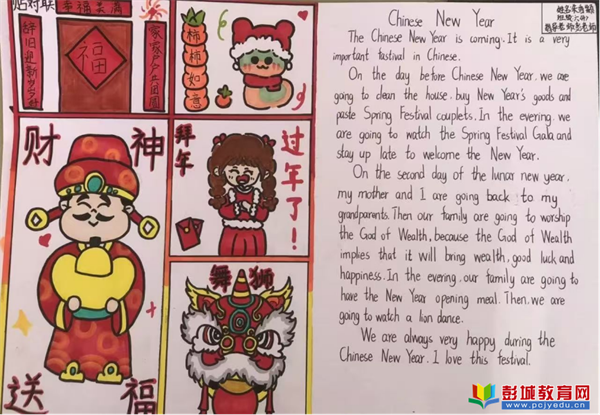 贴对联
福
柿柿如意
财神
送福
拜年
过年了！
舞狮
Chinese New Year
The Chinese New Year is coming. It is a very
important fastival in Chinese.
On the day before Chinese New Year, we are
going to clean the house, buy New Year's goods and
paste Spring Festival couplets. In the evening, we
are going to watch the Spring Festival Gala and
stay up late to welcome the New Year.
On the second day of the lunar new year,
my mother and I are going back to my
grandparents. Then our family are going to worship
the God of Wealth, because the God of Wealth
implies that it will bring wealth, good luck and
happiness. In the evering, our family are going to
have the New Year opening meal. Then, we are
going to watch a lion dance.
We are always very happy during the
Chinese New Year. I love this festival.
彭城教育网
www.pcjyedu.cn